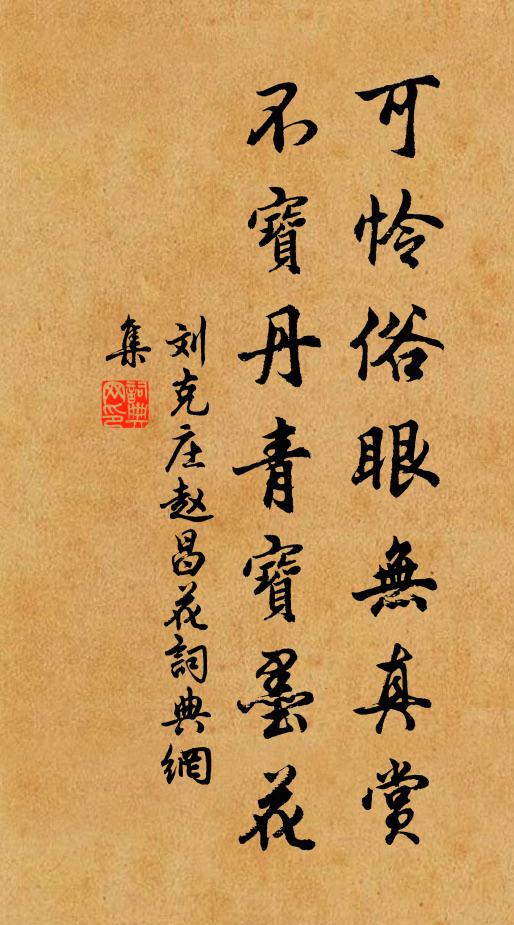 可怜俗眼無真賞
不寶丹青寶墨花
刘克庄赵昌花詞典網
集
詞典
网印